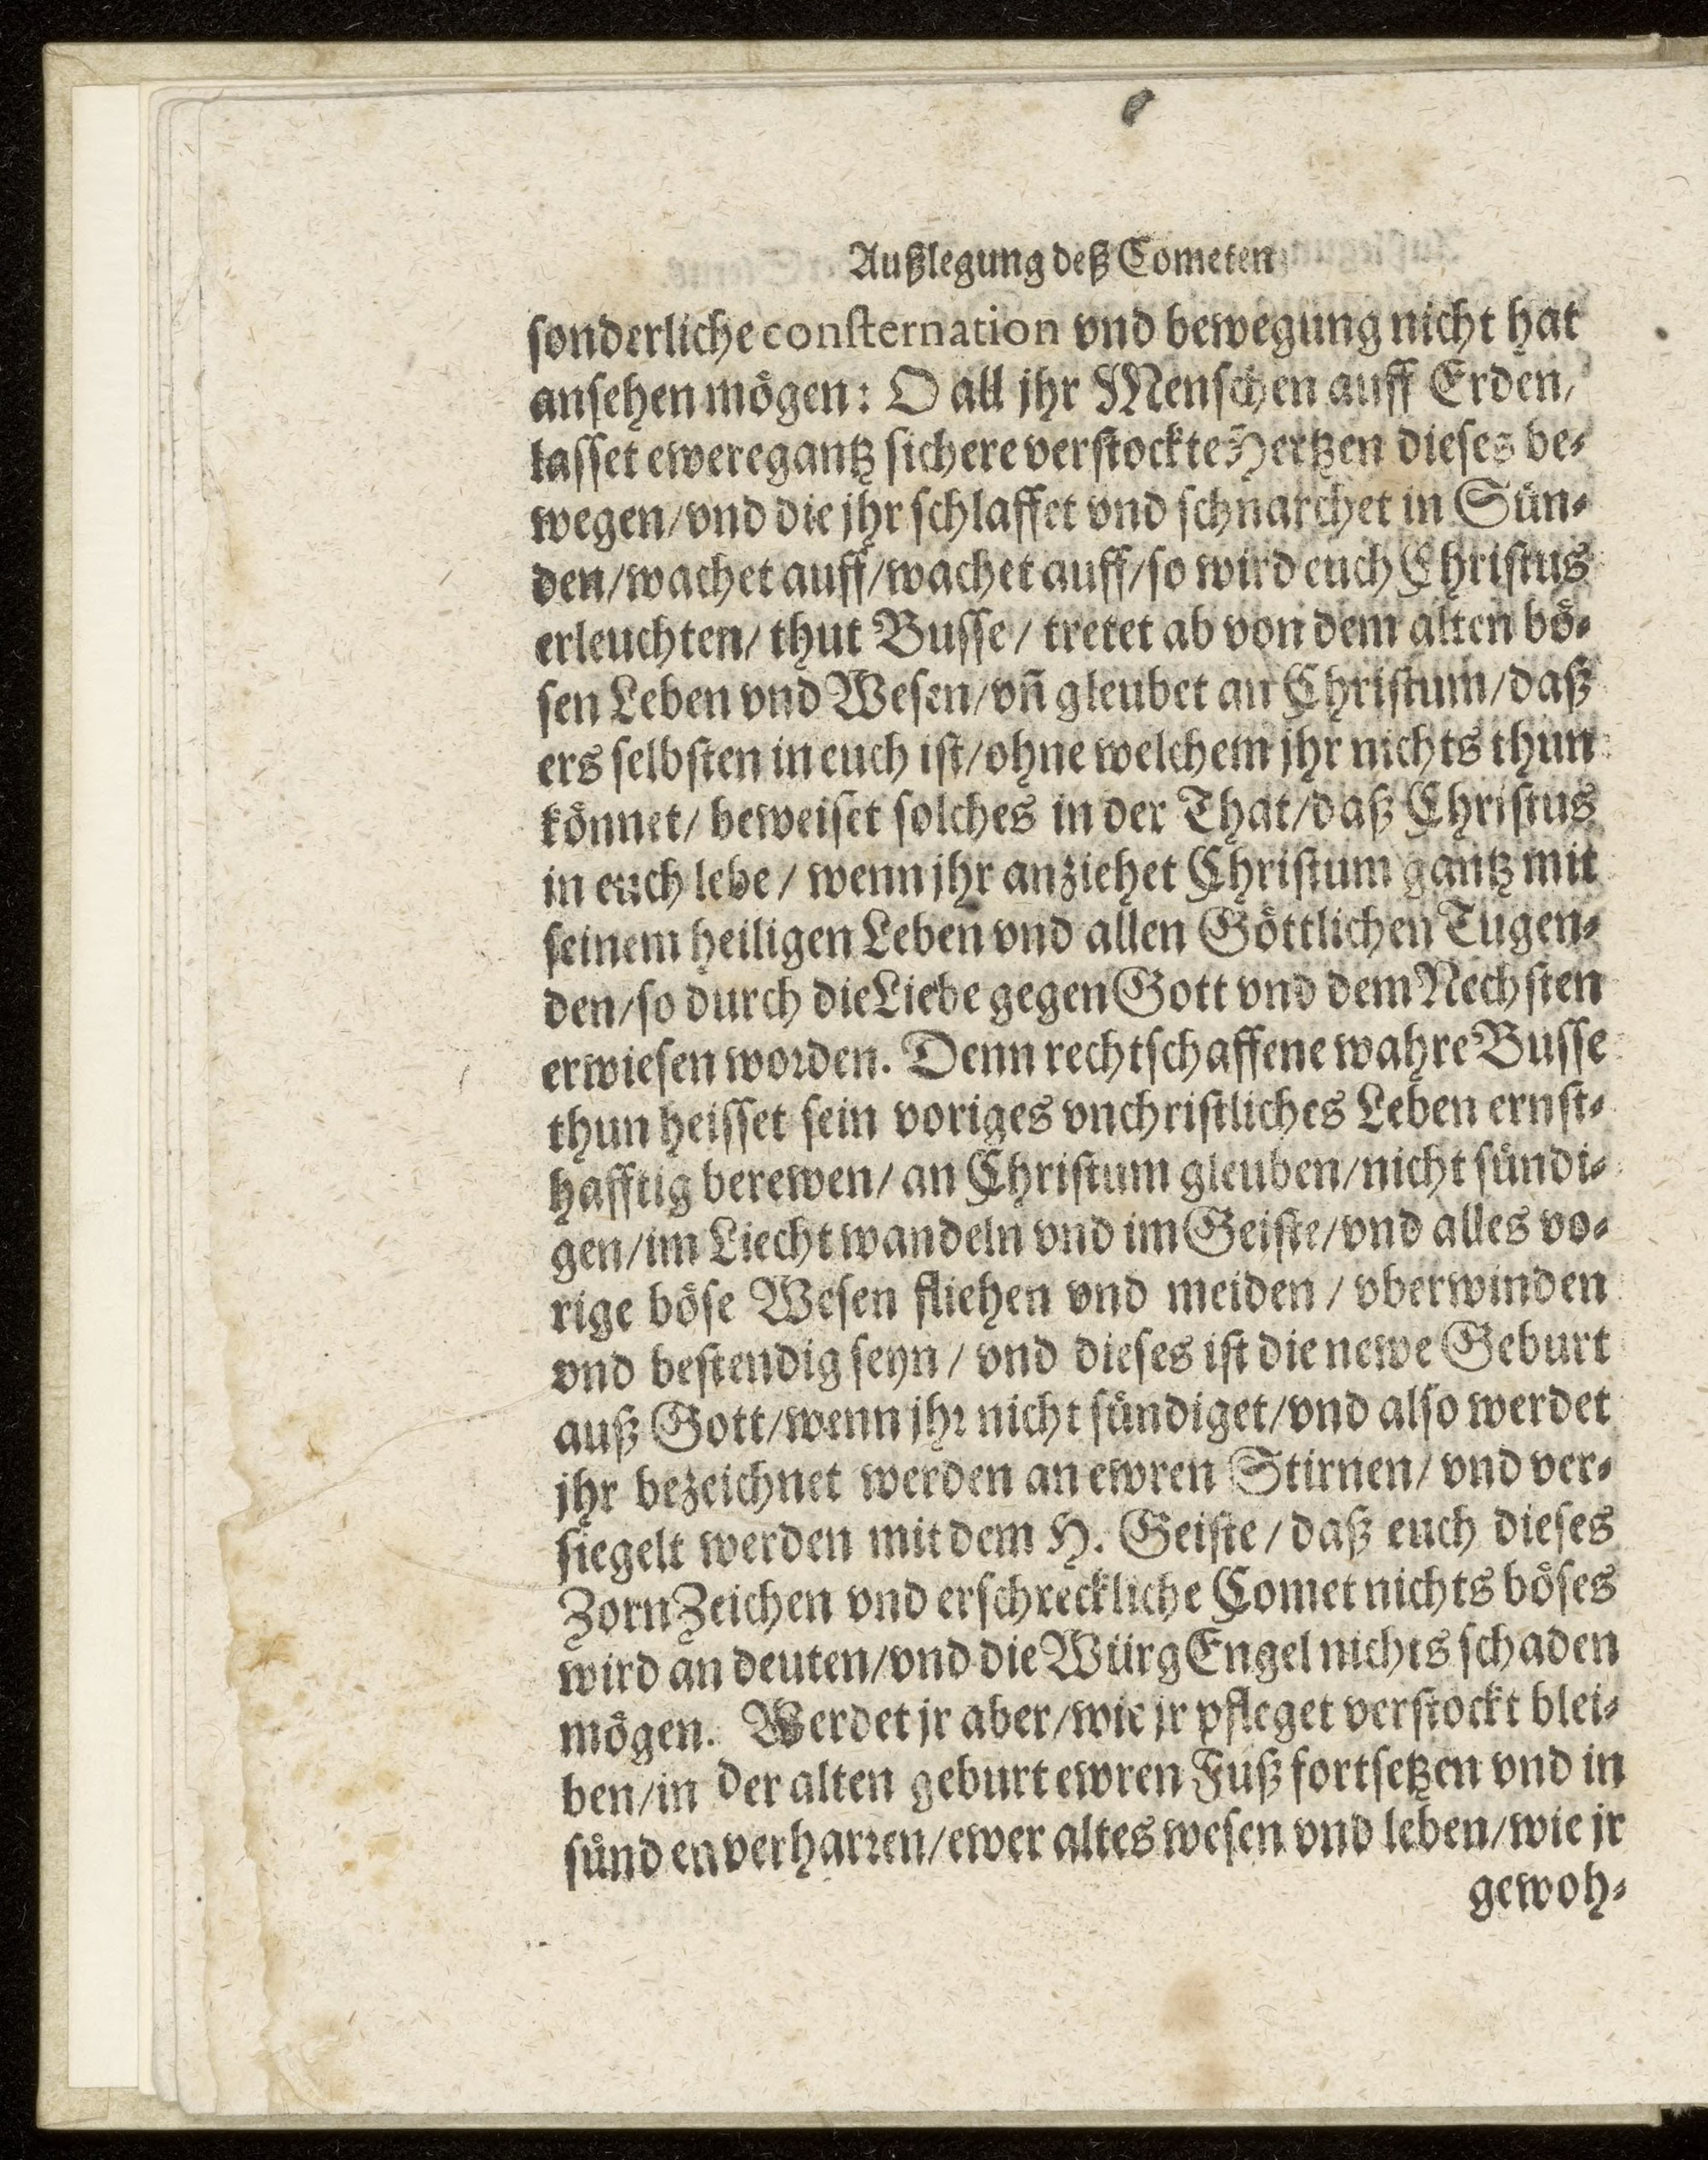 Außlegung deß Cometen
sonderliche consternation vnd bewegung nicht hat
ansehen mögen: O all jhr Menschen auff Erden/
lasset ewere gantz sichere verstockte Hertzen dieses be-
wegen/vnd die jhr schlaffet vnd schnarchet in Sün-
den/wachet auff/wachet auff/so wird euch Christus
erleuchten/ thut Busse/ tretet ab von dem alten bö-
sen Leben vnd Wesen/vñ gleubet an Christum/daß
ers selbsten in euch ist/ohne welchem jhr nichts thun
könnet/ beweiset solches in der That/daß Christus
in euch lebe/ wenn jhr anziehet Christum gantz mit
seinem heiligen Leben vnd allen Göttlichen Tugen-
den/so durch die Liebe gegen Gott vnd dem Nechsten
erwiesen worden. Denn rechtschaffene wahre Busse
thun heisset sein voriges vnchristliches Leben ernst-
hafftig berewen/ an Christum gleuben/nicht sündi-
gen/im Liecht wandeln vnd im Geiste/vnd alles vo-
rige böse Wesen fliehen vnd meiden/ vberwinden
vnd bestendig seyn/ vnd dieses ist die newe Geburt
auß Gott/wenn jhr nicht sündiget/vnd also werdet
jhr bezeichnet werden an ewren Stirnen/ vnd ver-
siegelt werden mit dem H. Geiste/ daß euch dieses
ZornZeichen vnd erschreckliche Comet nichts böses
wird an deuten/vnd die WürgEngel nichts schaden
mögen. Werdet jr aber/wie jr pfleget verstockt blei-
ben/in der alten geburt ewren Fuß fortsetzen vnd in
sünden verharren/ewer altes wesen vnd leben/wie jr
gewoh-